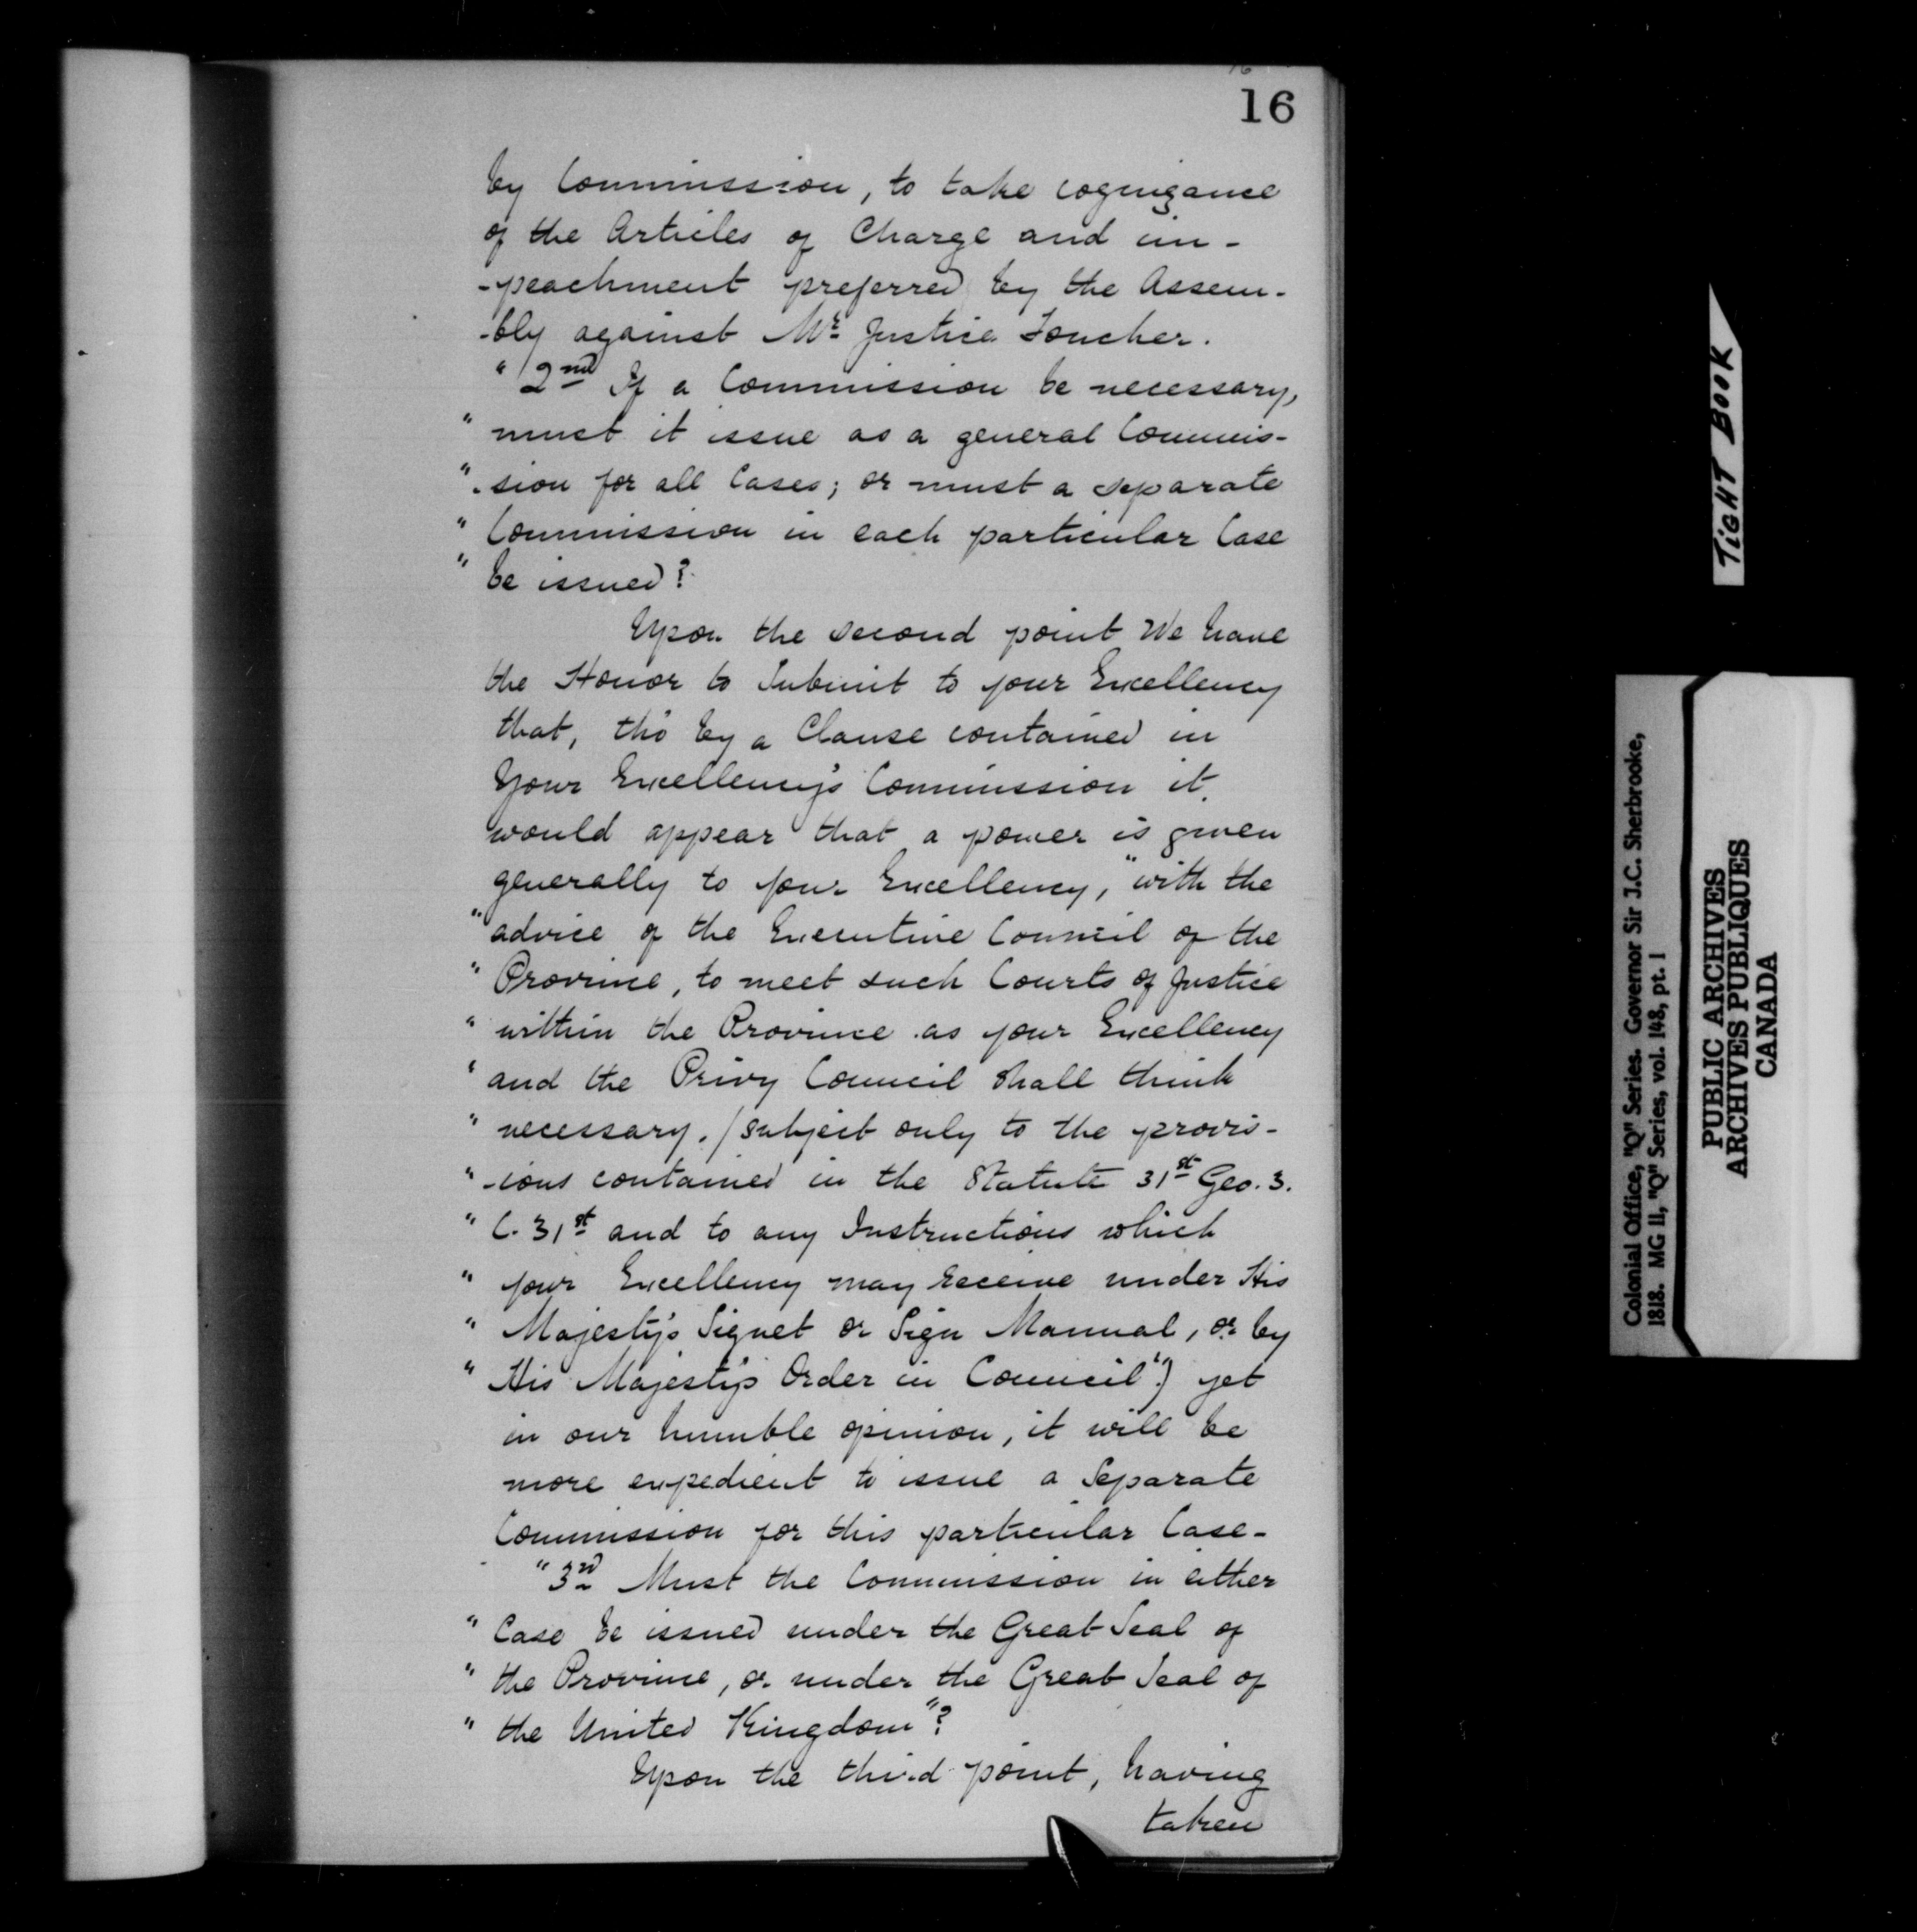 16
by Commission, to take cognizance
of the Articles of Charge and im-
-peachment preferred by the Assem-
-bly against Mr Justice Foucher.
" 2nd If a Commission be necessary,
" must it issue as a general Commis-
" -sion for all Cases; or must a separate
" Commission in each particular Case
" be issued?
Upon the second point We have
the Honor to Submit to your Excellency
that, tho' by a Clause contained in
Your Excellency's Commission it
would appear that a power is given
generally to your Excellency, "with the
" advice of the Executive Council of the
" Province, to meet such Courts of Justice
" within the Province as your Excellency
" and the Privy Council shall think
" necessary. (subject only to the provis-
" -ions contained in the Statute 31st Geo. 3.
" C. 31st and to any Instructions which
" your Excellency may receive under His
" Majesty's Signet or Sign Manual, or by
" His Majesty's Order in Council") yet
in our humble opinion, it will be
more expedient to issue a Separate
Commission for this particular Case-
" 3rd Must the Commission in either
" Case be issued under the Great Seal of
" the Province, or under the Great Seal of
" the United Kingdom"?
Upon the third point, having
taken
TIGHT BOOK
Colonial Office, "Q" Series. Governor Sir J.C. Sherbrooke,
1818. MG 11, "Q" Series, vol. 148, pt. 1
PUBLIC ARCHIVES
ARCHIVES PUBLIQUES
CANADA